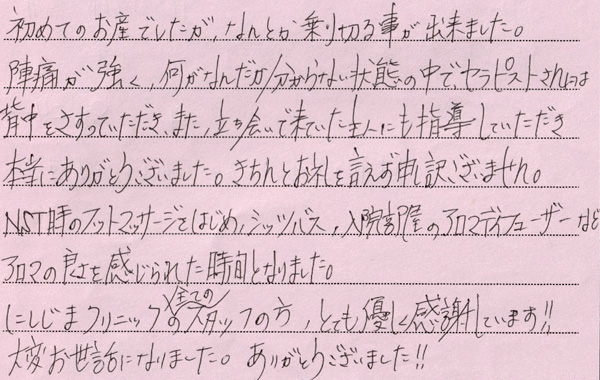 初めてのお産でしたが、なんとか乗り切る事が出来ました。
陣痛が強く、何がなんだか分からない状態の中で、セラピストさんには
背中をさすっていただき、また、立ち会いで来ていた主人にも指導していただき
本当にありがとうございました。きちんとお礼を言えず申し訳ございません。
NST時のフットマッサージをはじめ、シッツバス、入院部屋のアロマディフューザーなど
アロマの良さを感じられた時間となりました。
にしじまクリニックの全てのスタッフの方、とても優しく感謝しています!!
大変お世話になりました。ありがとうございました!!